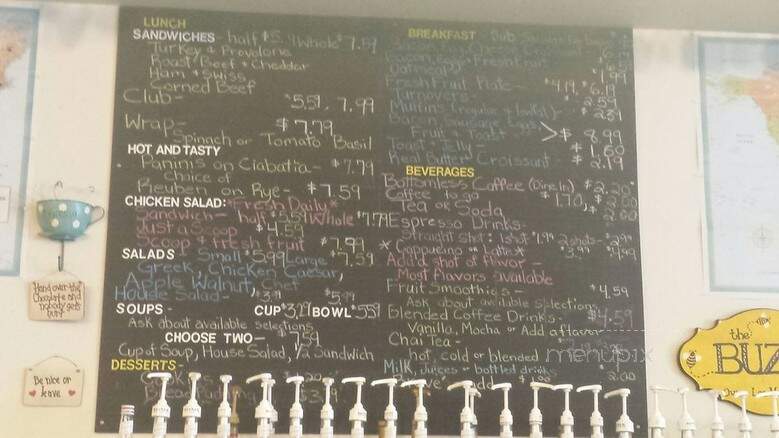 LUNCH
SANDWICHES - half $5. Whole $7.59
Turkey & Provolone
Roast Beef & Cheddar
Ham & Swiss
Corned Beef
Club - $5.59, 7.99
Wrap - $7.79
Spinach or Tomato Basil
HOT AND TASTY
Paninis on Ciabatia - $7.79
Choice of
Reuben on Rye - $7.59
CHICKEN SALAD: *Fresh Daily*
Sandwich - half $5.59 Whole $7.79
Just a Scoop $4.59
Scoop & fresh fruit $7.99
SALADS Small $5.99 Large $7.59
Greek, Chicken Caesar,
Apple Walnut, Chef
House Salad - $3.79 $5.79
SOUPS - CUP $3.29 BOWL $5.59
Ask about available selections
CHOOSE TWO - $7.59
Cup of Soup, House Salad, 1/2 Sandwich
DESSERTS -
Bread Pudding $3.49
BREAKFAST
Bacon, Eggs & Fresh Fruit
Oatmeal $4.99
Fresh Fruit Plate - $4.19, $6.19
Turnovers - $2.59
Muffins
Fruit & Toast > $8.99
Toast & Jelly - $1.60
Real Butter Croissant - $2.19
BEVERAGES
Bottomless Coffee (Dine In) $2.20
Coffee to go $1.70, $2.00
Tea or Soda 2.00
Espresso Drinks -
Straight Shot: 1 shot $1.99 2 shots - $2.99
* Cappucino or Latte * $3.99 $4.99
Add a shot of flavor -
Most flavors available
Fruit Smoothies - $4.59
Ask about available selections
Blended Coffee Drinks - $4.59
Vanilla, Mocha or Add a flavor
Chai Tea -
hot, cold or blended
Milk, Juices or bottled drinks 2.00
menupix
Hand over the
Chocolate and
nobody gets
hurt
Be nice or
leave
the
BUZ